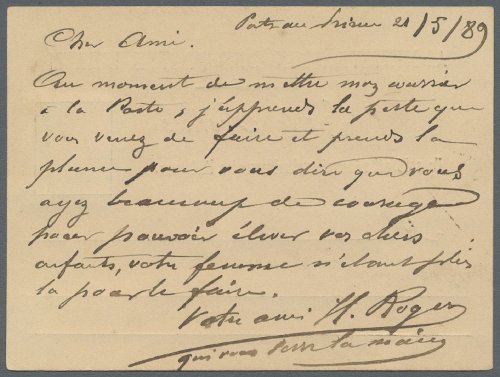 Port au Prince 21/5/89
Cher Ami.
Au moment de mettre mon courrier
à la Poste, j'apprends la perte que
vous venez de faire et prends la
plume pour vous dire que vous
ayez beaucoup de courage
pour pouvoir élever vos chers
enfants, votre femme n'étant plus
là pour le faire.
Votre ami H. Roger
qui vous serre la main